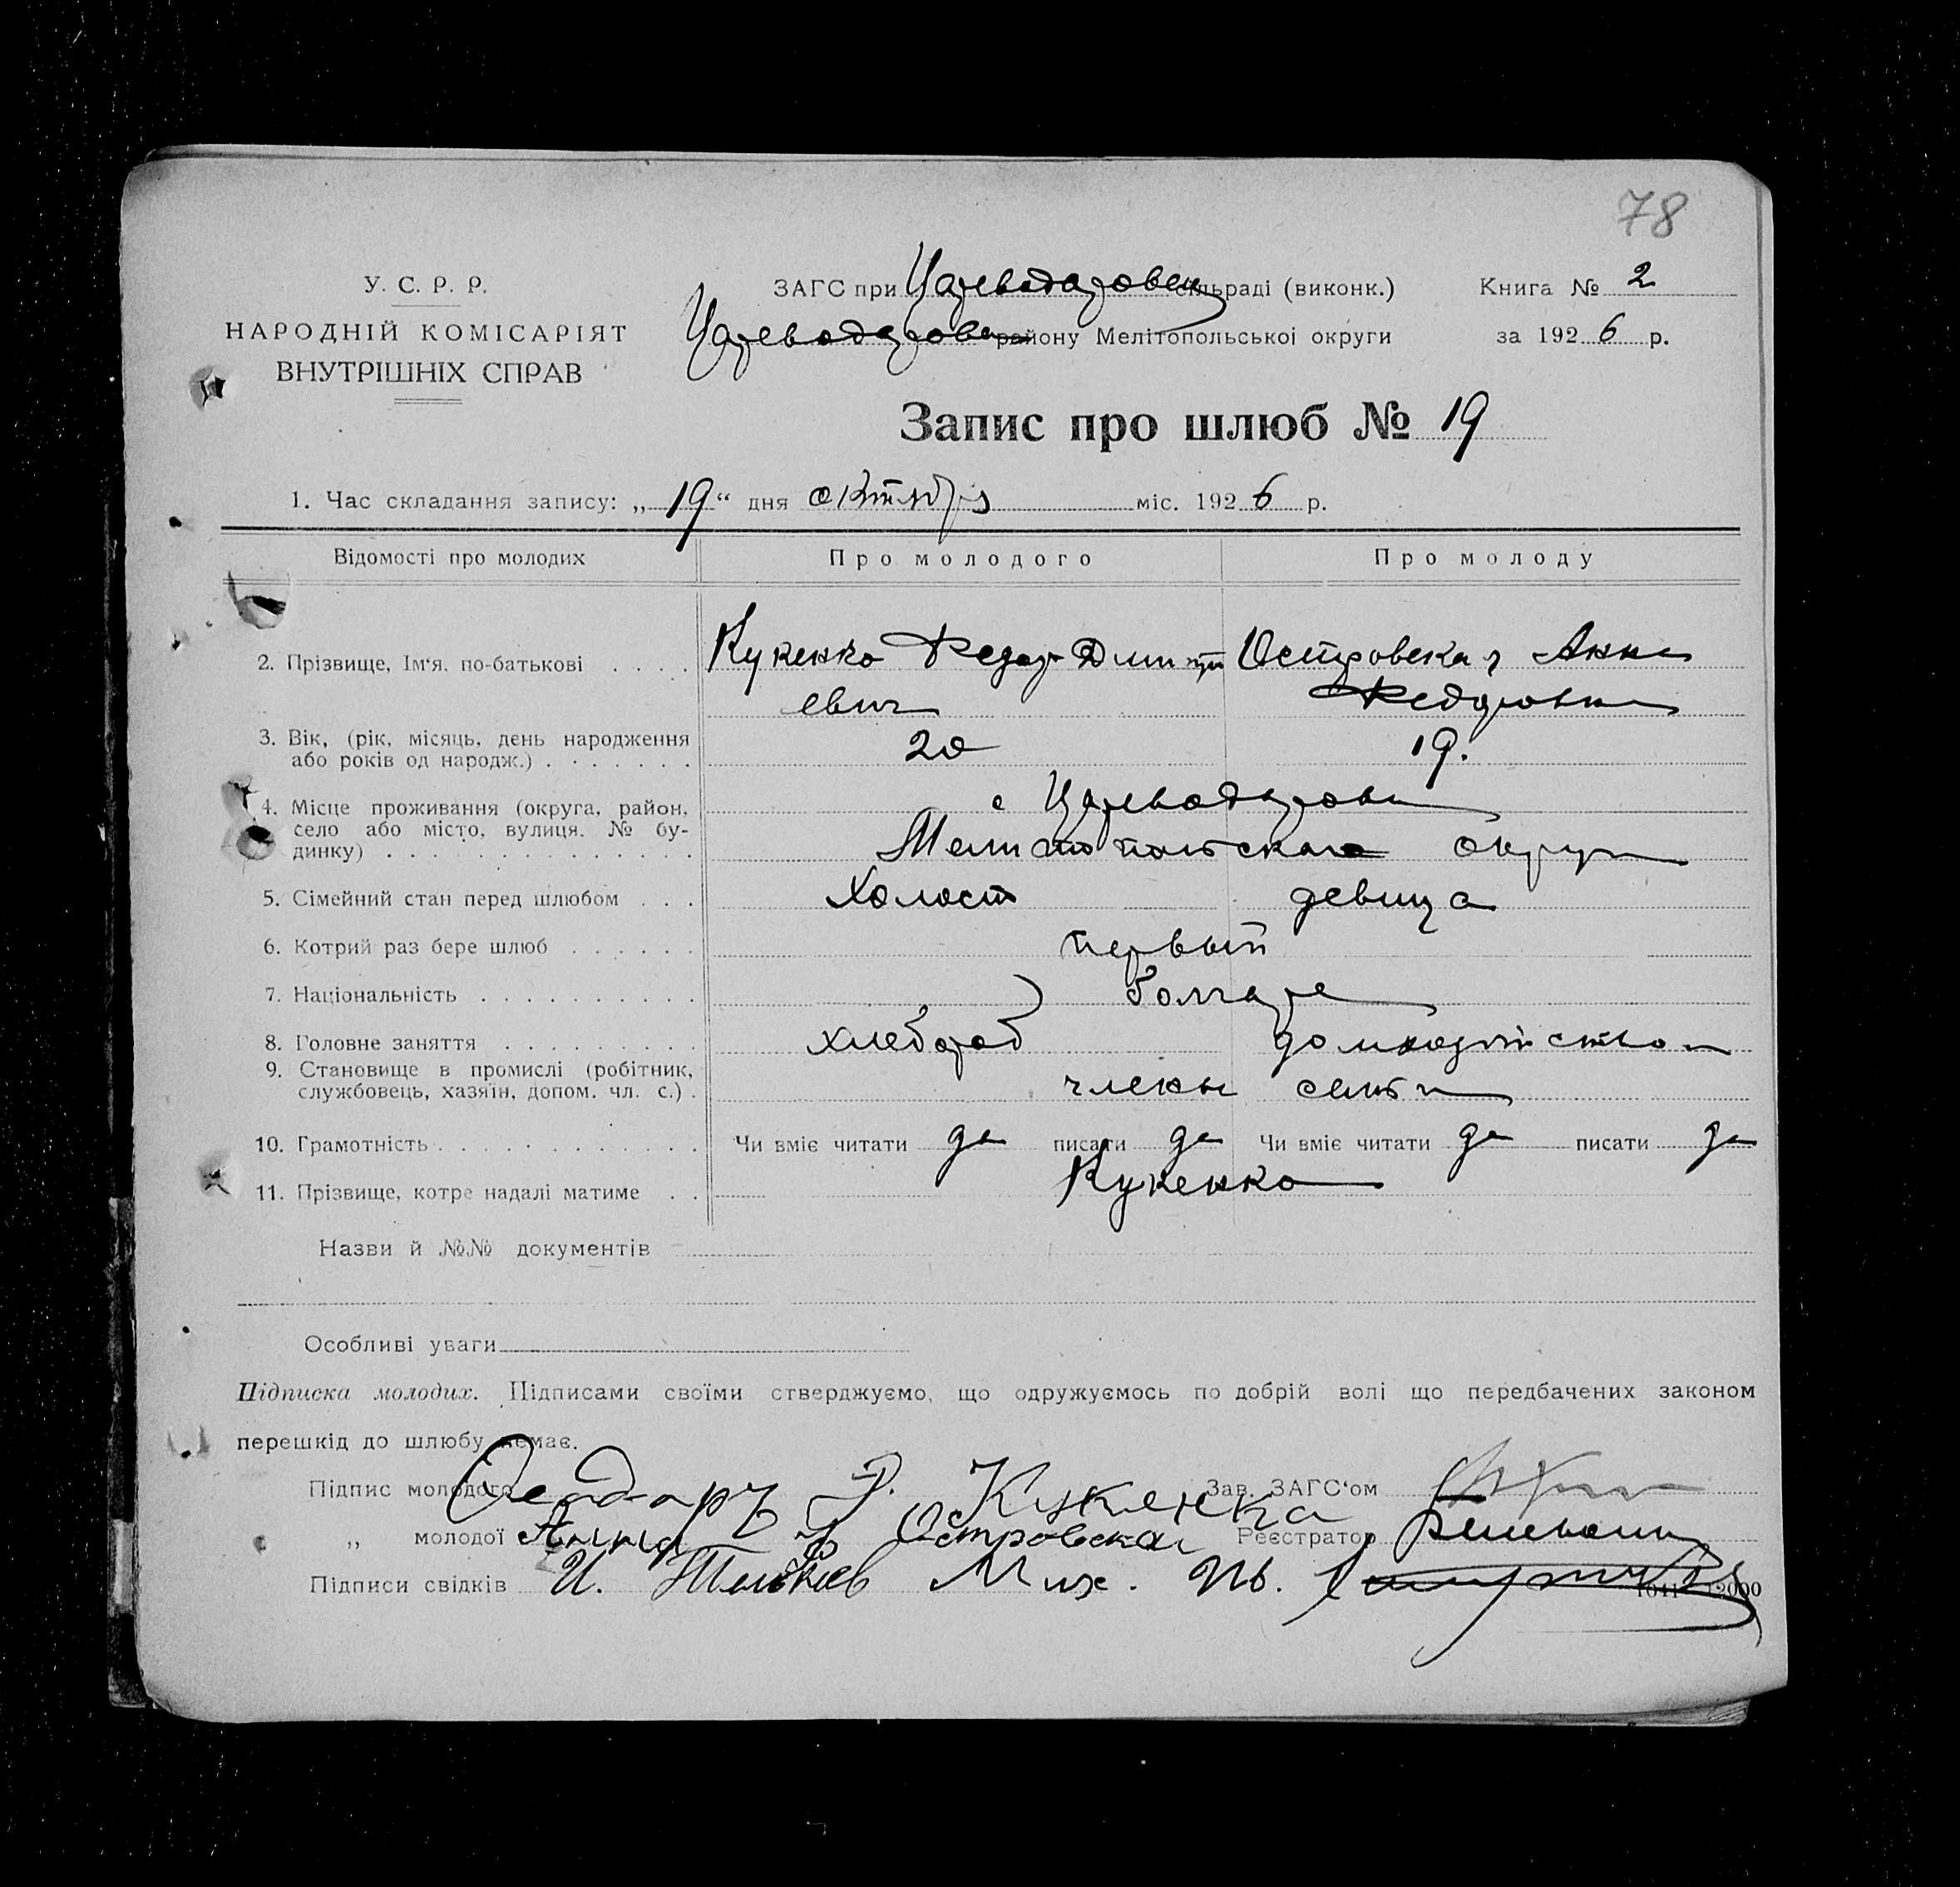 78
У. С. Р. Р.
НАРОДНІЙ КОМІСАРІЯТ
ВНУТРІШНІХ СПРАВ
ЗАГС при Цареводаровск сільраді (виконк.) Книга № 2
Цареводаровск району Мелітопольськоі округи за 1926 р.
Запис про шлюб № 19
1. Час складання запису: „19“ дня октября міс. 1926 р.
Відомості про молодих Про молодого Про молоду
2. Прізвище, Ім‘я. по-батькові Кукенко Федор Дмитри Островская Анна
евич Федоровна
3. Вік, (рік, місяць, день народження
або років од народж.) 20 19.
4. Місце проживання (округа, район, с Цареводаровка
село або місто, вулиця. № бу-
динку) Мелитопольского округа
5. Сімейний стан перед шлюбом Холост девица
6. Котрий раз бере шлюб первый
7. Національність болгаре
8. Головне заняття хлебороб домхозяйством
9. Становище в промислі (робітник,
службовець, хазяїн, допом. чл. с.) члены семьи
10. Грамотність Чи вміє читати да писати да Чи вміє читати да писати да
11. Прізвище, котре надалі матиме Кукенко
Назви й №№ документів
Особливі уваги
Підписка молодих. Підписами своїми стверджуємо, що одружуємось по добрій волі що передбачених законом
перешкід до шлюбу немає.
Підпис молодого Феодоръ Д. Кукенка Зав. ЗАГС‘ом
„ молодої Анна Ф Островская Реєстратор
Підписи свідків И. Мих. Ив.